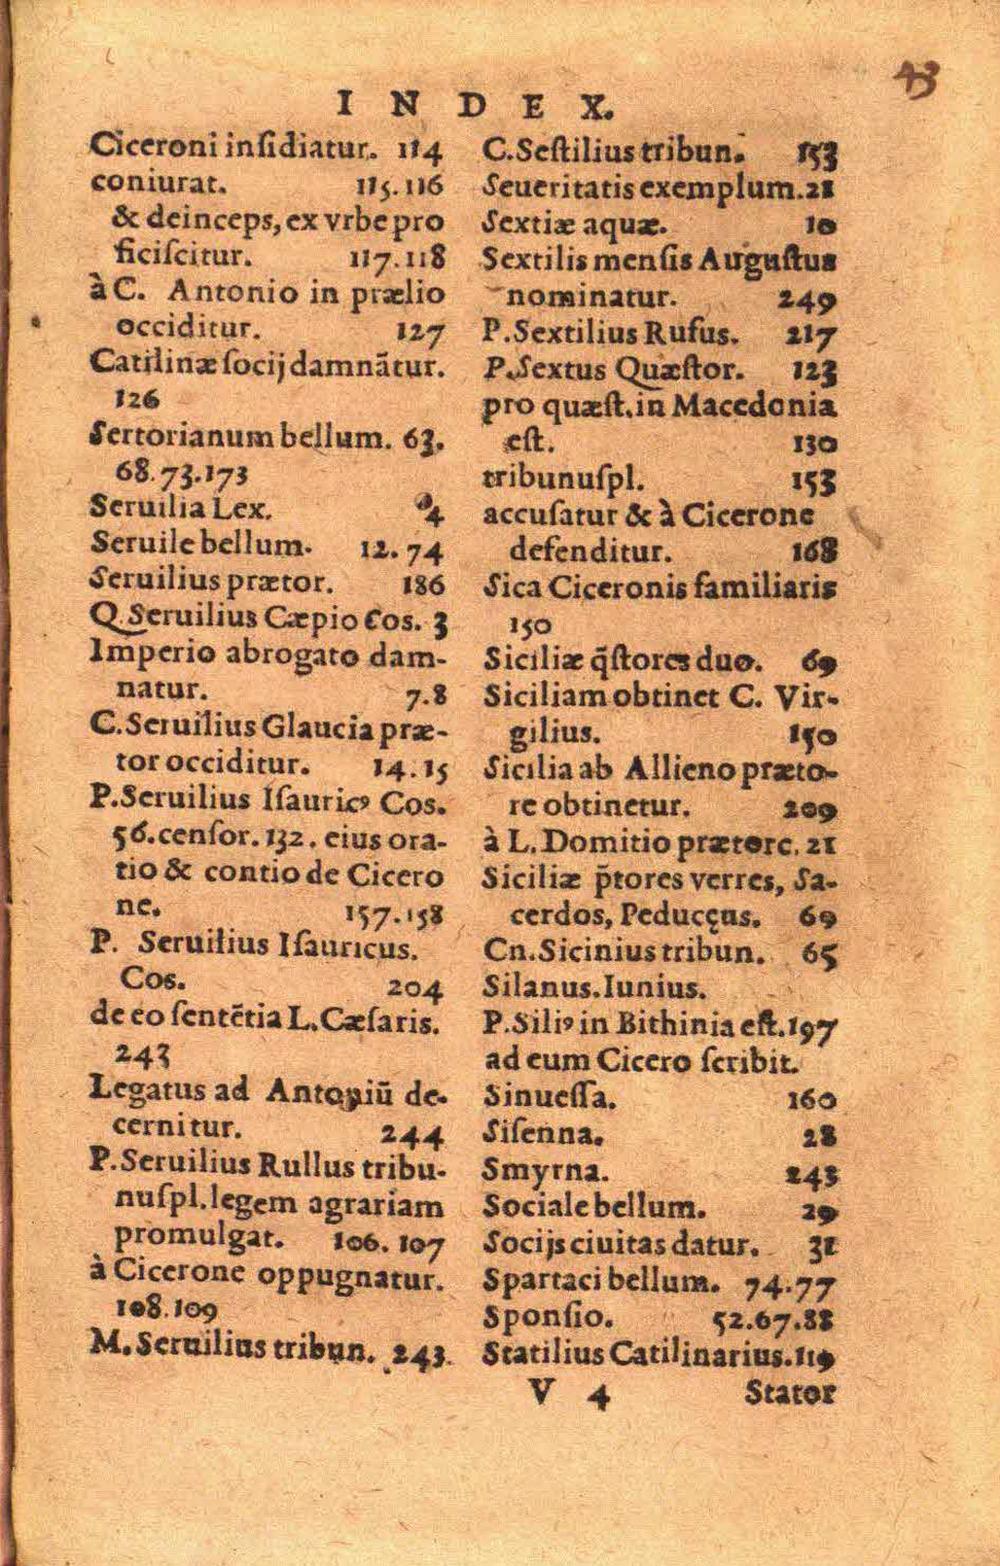 43
INDEX.
Ciceroni inſidiatur. 114
coniurat. 115.116
& deinceps, ex vrbe pro
ficiſcitur. 117.118
à C. Antonio in prælio
occiditur. 127
Catilinæ ſocij damnãtur.
126
Sertorianum bellum. 63.
68.73.173
Seruilia Lex. 4
Seruile bellum. 12. 74
Seruilius prætor. 186
Q.Seruilius Cæpio Cos. 3
Imperio abrogato dam-
natur. 7.8
C.Seruilius Glaucia præ-
tor occiditur. 14.15
P.Seruilius Iſauricꝰ Cos.
56.cenſor.132. eius ora-
tio & contio de Cicero
ne. 157.158
P. Seruilius Iſauricus.
Cos. 204
de eo ſentẽtia L.Cæſaris.
243
Legatus ad Antoniũ de-
cernitur. 244
P.Seruilius Rullus tribu-
nuſpl.legem agrariam
promulgat. 106. 107
à Cicerone oppugnatur.
108.109
M.Seruilius tribun. 243.
C.Seſtilius tribun. 153
Seueritatis exemplum.21
Sextiæ aquæ. 10
Sextilis menſis Auguſtus
nominatur. 249
P.Sextilius Rufus. 217
P.Sextus Quæſtor. 123
pro quæſt.in Macedonia
eſt. 130
tribunuſpl. 153
accuſatur & à Cicerone
defenditur. 168
Sica Ciceronis familiaris
150
Siciliæ q̃ſtores duo. 69
Siciliam obtinet C. Vir-
gilius. 150
Sicilia ab Allieno præto-
re obtinetur. 209
à L.Domitio prætore. 21
Siciliæ p̃tores verres, Sa-
cerdos, Peducęus. 69
Cn.Sicinius tribun. 65
Silanus.Iunius.
P.Siliꝰ in Bithinia eſt.197
ad eum Cicero ſcribit.
Sinueſſa. 160
Siſenna. 28
Smyrna. 243
Sociale bellum. 29
Socijs ciuitas datur. 31
Spartaci bellum. 74.77
Sponſio. 52.67.88
Statilius Catilinarius.119
V 4 Stator